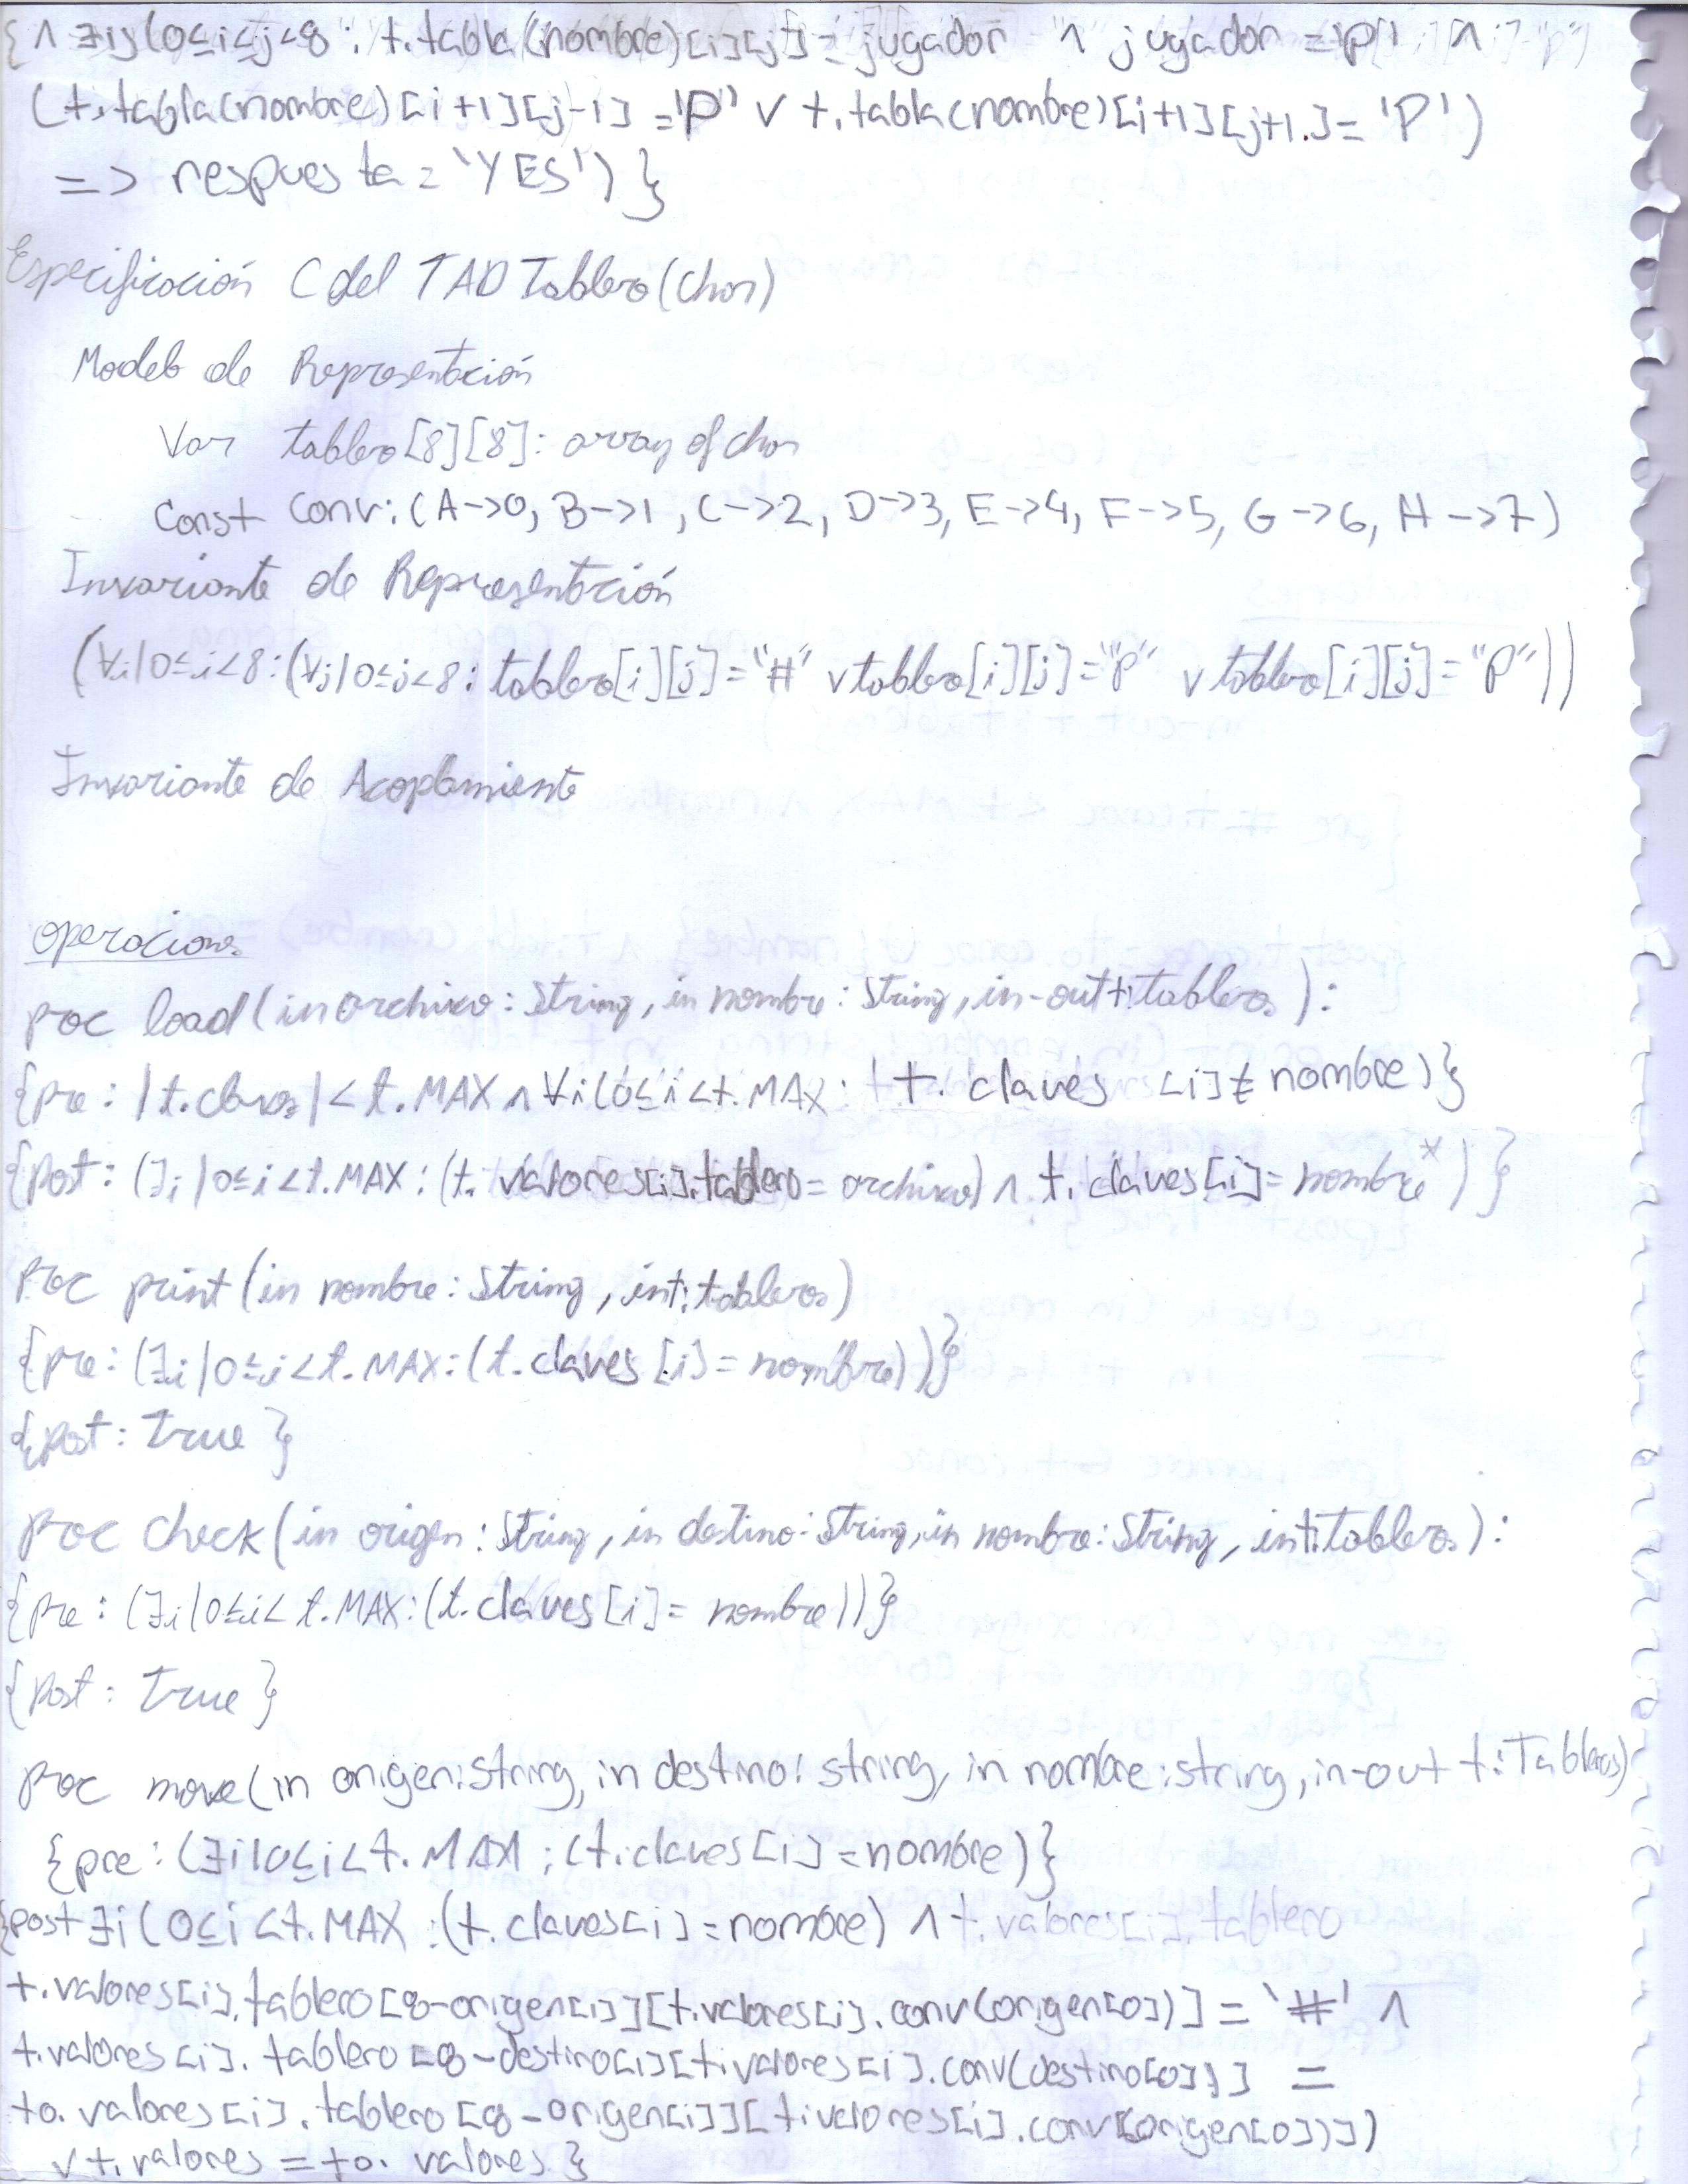 {∧ ∃ij(0≤i<j<8 : t.tabla(nombre)[i][j] = jugador ∧ jugador = 'P' ∧
(t.tabla(nombre)[i+1][j-1] = 'P' ∨ t.tabla(nombre)[i+1][j+1] = 'P')
=> respuesta = 'YES') }
Especificación C del TAD Tablero(char)
Modelo de Representación
Var tablero[8][8]: array of char
Const conv: (A->0, B->1, C->2, D->3, E->4, F->5, G->6, H->7)
Invariante de Representación
(∀i|0≤i<8:(∀j|0≤j<8: tablero[i][j]="#" ∨ tablero[i][j]="p" ∨ tablero[i][j]="P"))
Invariante de Acoplamiento
Operaciones
proc load(in archivo: String, in nombre: String, in-out t:tableros):
{pre: |t.claves| < t.MAX ∧ ∀i(0≤i<t.MAX: t.claves[i] ≠ nombre)}
{Post: (∃i|0≤i<t.MAX: (t.valores[i].tablero = archivo) ∧ t.claves[i] = nombre*)}
Proc print(in nombre: String, in t:tableros)
{pre: (∃i|0≤i<t.MAX: (t.claves[i] = nombre))}
{Post: True}
Proc check(in origen: String, in destino: String, in nombre: String, in t:tableros):
{Pre: (∃i|0≤i<t.MAX: (t.claves[i] = nombre))}
{Post: True}
Proc move(in origen: String, in destino: string, in nombre: string, in-out t: Tableros)
{pre: (∃i|0≤i<t.MAX: (t.claves[i] = nombre)}
{post ∃i(0≤i<t.MAX: (t.claves[i] = nombre) ∧ t.valores[i].tablero
t.valores[i].tablero[8-origen[1]][t.valores[i].conv(origen[0])] = '#' ∧
t.valores[i].tablero[8-destino[1]][t.valores[i].conv(destino[0])] =
t0.valores[i].tablero[8-origen[1]][t.valores[i].conv(origen[0])])
∨ t.valores = t0.valores}